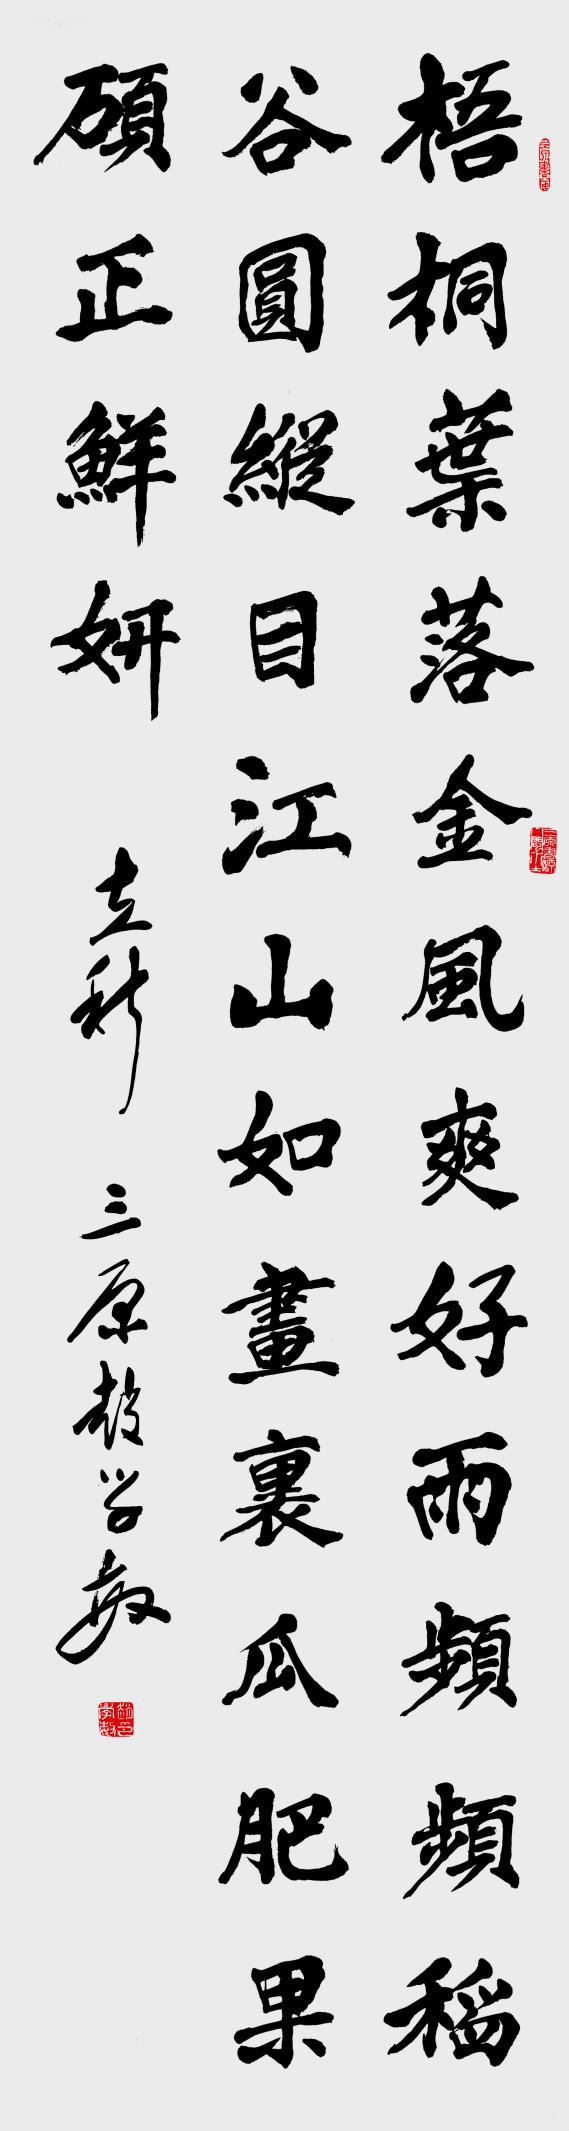 梧桐葉落金風爽好雨頻頻稻
谷圓縱目江山如畫裏瓜肥果
碩正鮮妍
立秋 三原趙学敏